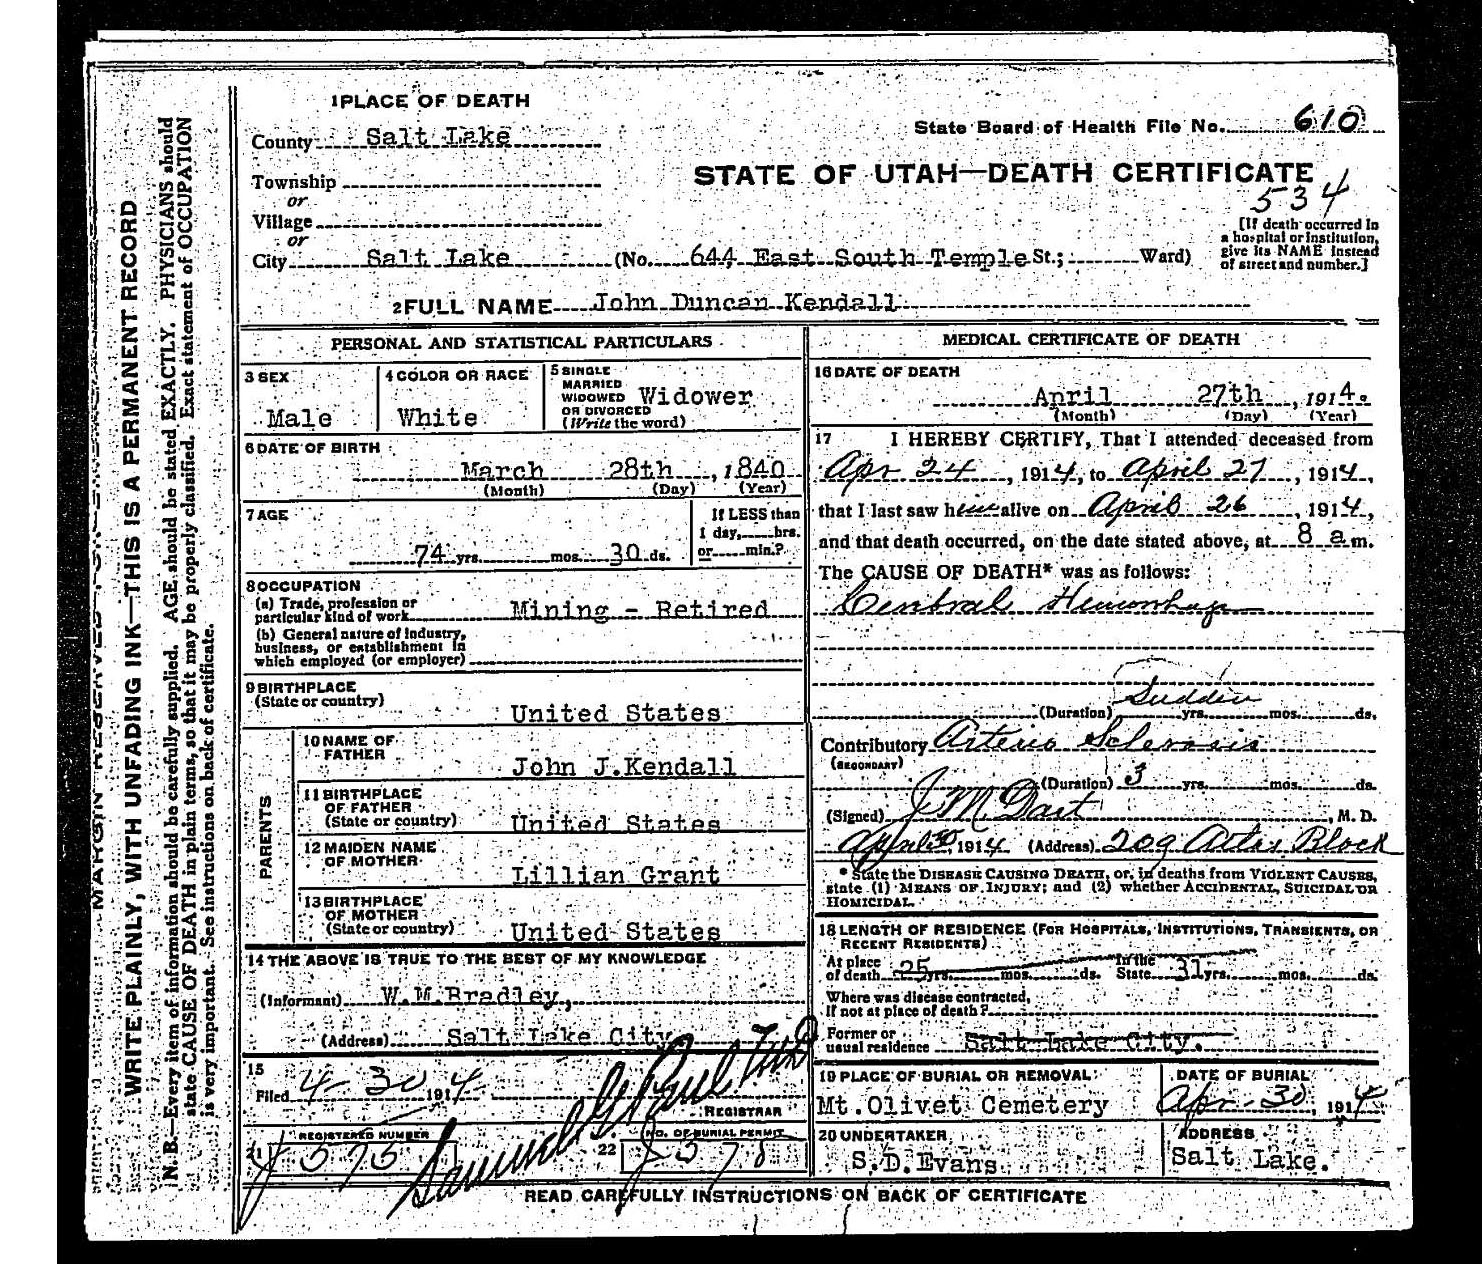 1 PLACE OF DEATH
County Salt Lake
State Board of Health File No. 610
Township
or
Village
or
STATE OF UTAH—DEATH CERTIFICATE
534
[If death occurred in
a hospital or institution,
give its NAME instead
of street and number.]
City Salt Lake (No. 644 East South Temple St.; Ward)
2 FULL NAME John Duncan Kendall
PERSONAL AND STATISTICAL PARTICULARS
3 SEX
Male
4 COLOR OR RACE
White
5 SINGLE
MARRIED
WIDOWED
OR DIVORCED
(Write the word)
Widower
6 DATE OF BIRTH
March 28th, 1840
(Month) (Day) (Year)
7 AGE
74 yrs. mos. 30 ds.
If LESS than
1 day, hrs.
or min.?
8 OCCUPATION
(a) Trade, profession or
particular kind of work Mining - Retired
(b) General nature of industry,
business, or establishment in
which employed (or employer)
9 BIRTHPLACE
(State or country)
United States
PARENTS
10 NAME OF
FATHER
John J.Kendall
11 BIRTHPLACE
OF FATHER
(State or country)
United States
12 MAIDEN NAME
OF MOTHER
Lillian Grant
13 BIRTHPLACE
OF MOTHER
(State or country)
United States
14 THE ABOVE IS TRUE TO THE BEST OF MY KNOWLEDGE
(Informant) W.M.Bradley,
(Address) Salt Lake City
15
Filed 4-30 1914
REGISTRAR
REGISTERED NUMBER
21
J 575
22
NO. OF BURIAL PERMIT
J 578
MEDICAL CERTIFICATE OF DEATH
16 DATE OF DEATH
April 27th, 1914.
(Month) (Day) (Year)
17 I HEREBY CERTIFY, That I attended deceased from
Apr 24, 1914, to April 27, 1914,
that I last saw him alive on April 26, 1914,
and that death occurred, on the date stated above, at 8 a m.
The CAUSE OF DEATH* was as follows:
Cerebral Hemorrhage
Sudden
(Duration) yrs. mos. ds.
Contributory Arterio Sclerosis
(SECONDARY)
(Duration) 3 yrs. mos. ds.
(Signed) J M Dart, M. D.
April 30, 1914 (Address) 209 Atlas Block
* State the DISEASE CAUSING DEATH, or, in deaths from VIOLENT CAUSES,
state (1) MEANS OF INJURY; and (2) whether ACCIDENTAL, SUICIDAL OR
HOMICIDAL.
18 LENGTH OF RESIDENCE (FOR HOSPITALS, INSTITUTIONS, TRANSIENTS, OR
RECENT RESIDENTS)
At place
of death 25 yrs. mos. ds. In the
State 31 yrs. mos. ds.
Where was disease contracted,
If not at place of death?
Former or
usual residence Salt Lake City.
19 PLACE OF BURIAL OR REMOVAL
Mt.Olivet Cemetery
DATE OF BURIAL
Apr-30, 1914
20 UNDERTAKER
S.D.Evans
ADDRESS
Salt Lake.
READ CAREFULLY INSTRUCTIONS ON BACK OF CERTIFICATE
MARGIN RESERVED FOR
WRITE PLAINLY, WITH UNFADING INK—THIS IS A PERMANENT RECORD
N. B.—Every item of information should be carefully supplied. AGE should be stated EXACTLY. PHYSICIANS should
state CAUSE OF DEATH in plain terms, so that it may be properly classified. Exact statement of OCCUPATION
is very important. See instructions on back of certificate.